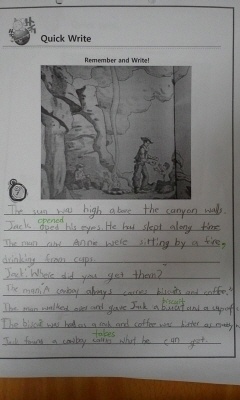 Quick Write
Remember and Write!
The sun was high above the canyon walls.
opened
Jack oped his eyes. He has slept along time
The man and Annie were sitting by a fire,
drinking from cups.
"Where did you get them?"
The man "A cowboy always carries biscuits and coffee."
The man walked over and gave Jack a biscuit and a cup of
biscuit
The biscuit was hard as a rock and coffee was bitter as
takes
Jack found a cowboy takes what he can get.